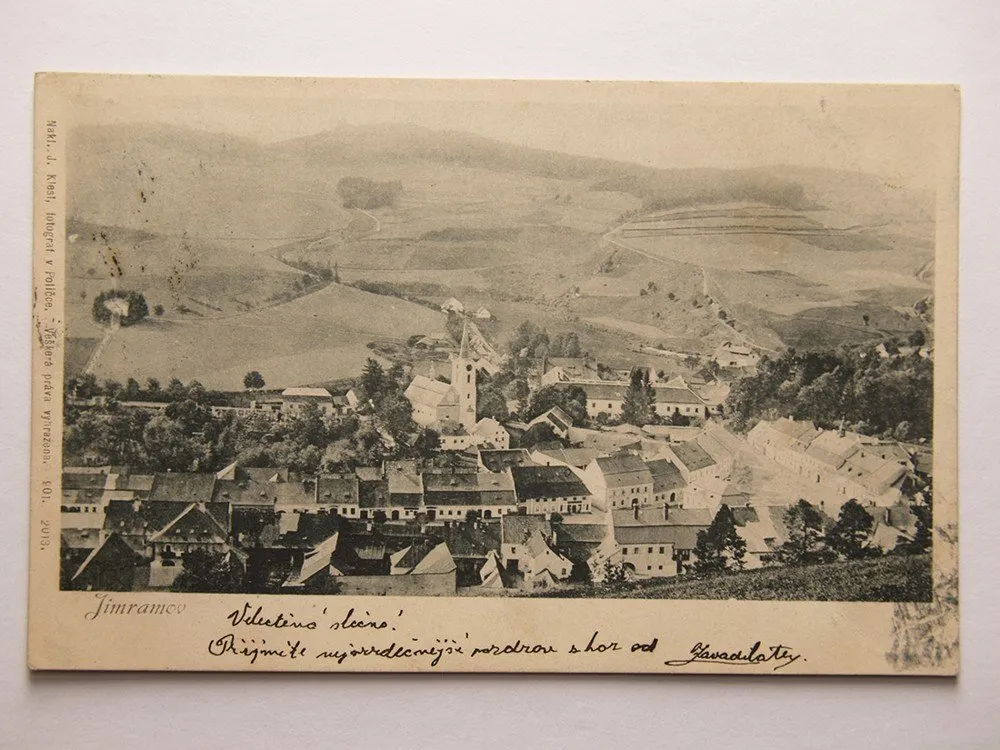 Nakl. J. Klesl, fotograf v Poličce. - Veškerá práva vyhrazena. 601. 2013.
Jimramov
Velectěná slečno!
Přijměte nejsrdečnější pozdrav s hor od